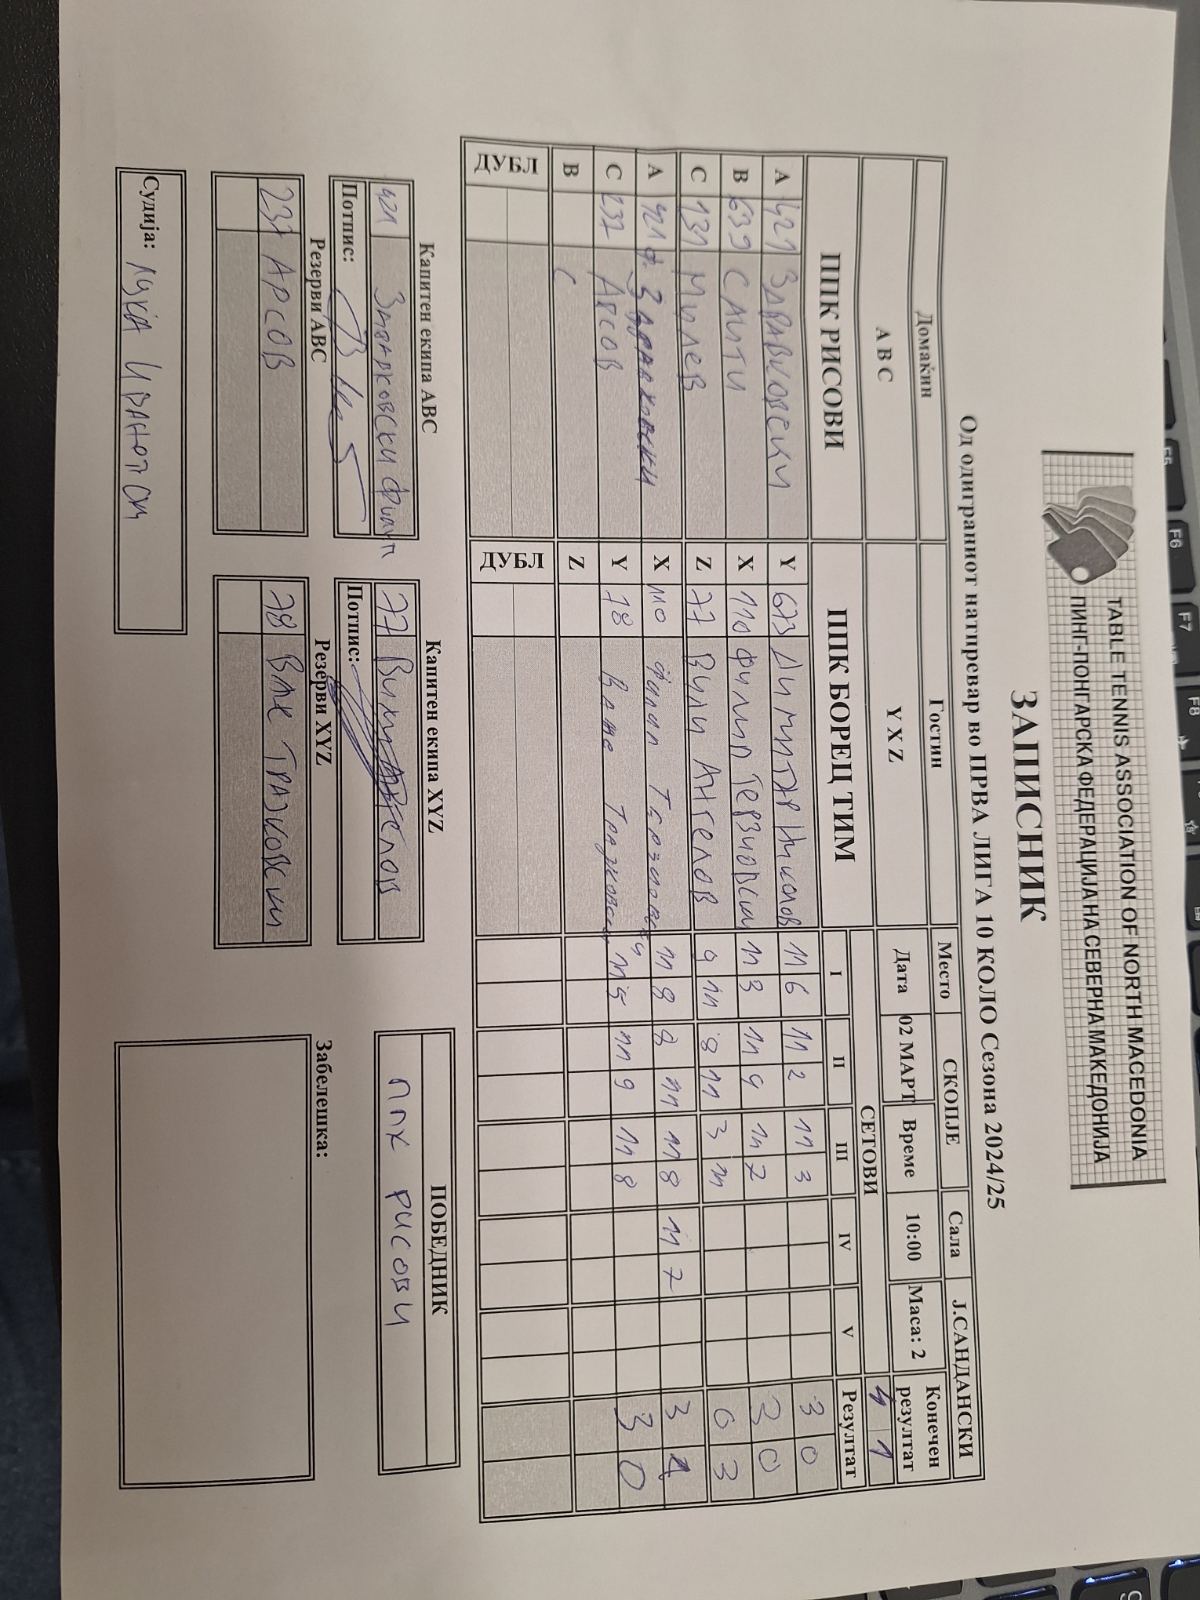 TABLE TENNIS ASSOCIATION OF NORTH MACEDONIA
ПИНГ-ПОНГАРСКА ФЕДЕРАЦИЈА НА СЕВЕРНА МАКЕДОНИЈА
ЗАПИСНИК
Од одиграниот натпревар во ПРВА ЛИГА 10 КОЛО Сезона 2024/25
Домаќин Гостин Место СКОПЈЕ Сала Ј.САНДАНСКИ
A B C Y X Z Дата 02 МАРТ Време 10:00 Маса: 2 Конечен резултат
СЕТОВИ 4 1
ППК РИСОВИ ППК БОРЕЦ ТИМ I II III IV V Резултат
A 421 ЗДРАВКОВСКИ Y 673 Димитар Николов 11 6 11 2 11 3 3 0
B 639 САИТИ X 110 Филип Терзиовски 11 3 11 9 11 7 3 0
C 131 Милев Z 77 Вили Ангелов 9 11 8 11 3 11 0 3
A 421 Ф. Здравковски X 110 Филип Терзиовски 11 8 8 11 11 8 11 7 3 1
C 237 АРСОВ Y 78 Влае Тразковски 11 5 11 9 11 8 3 0
B C Z
ДУБЛ ДУБЛ
Капитен екипа ABC Капитен екипа XYZ ПОБЕДНИК
421 Здравковски Филип 77 Ангелов ППК РИСОВИ
Потпис: Потпис:
Резерви ABC Резерви XYZ Забелешка:
237 АРСОВ 78 ВЛАЕ ТРАЈКОВСКИ
Судија: ЛУКА